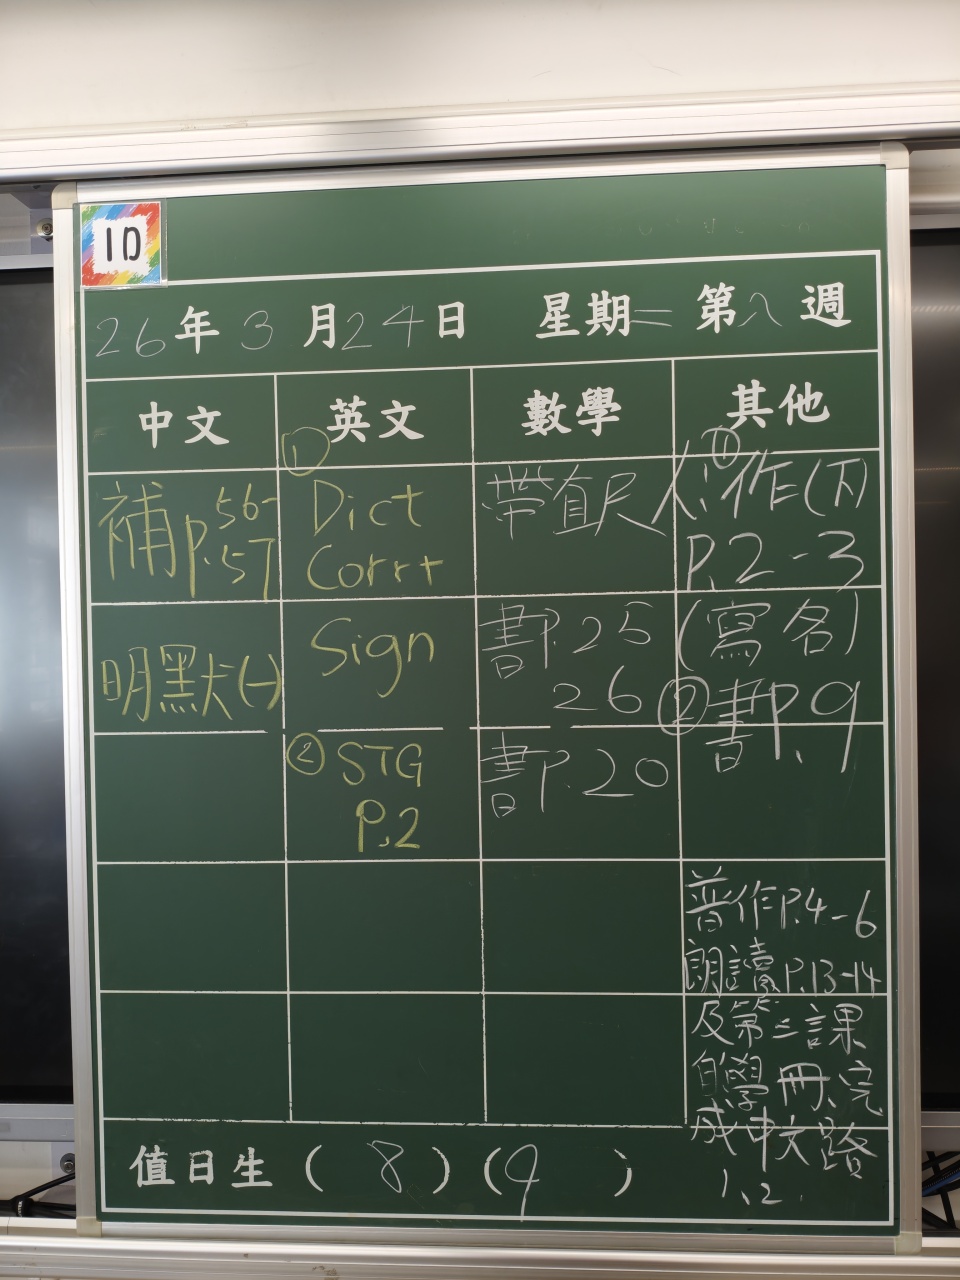 1D
26年3月24日 星期二 第八週
中文 英文 數學 其他
補P.56-
57
明默(一)
①
Dict
Corr+
Sign
② STG
P.2
帶直尺
書P.25
26
書P.20
人:①作(下)
P.2-3
(寫名)
②書P.9
普作P.4-6
朗讀P.13-14
及第三課
自學冊、完
成中文路
1、2.
值日生(8)(9)